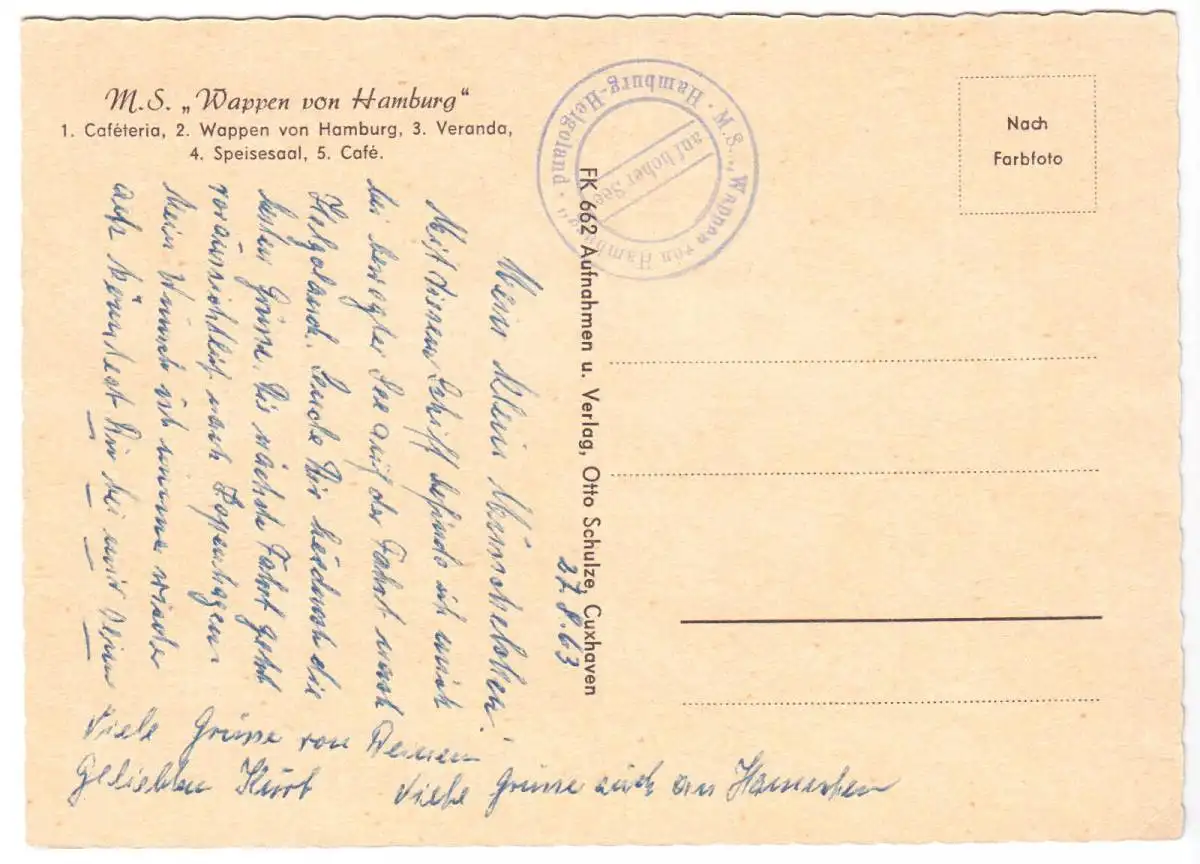 M.S. „Wappen von Hamburg“
1. Caféteria, 2. Wappen von Hamburg, 3. Veranda,
4. Speisesaal, 5. Café.
M.S. „Wappen von Hamburg“ · Hamburg-Helgoland ·
auf hoher See
Nach
Farbfoto
FK 662 Aufnahmen u. Verlag, Otto Schulze, Cuxhaven
27.8.63
Mein klein
Mit diesem Schiff befinde ich mich
bei bewegter See auf der Fahrt nach
Helgoland. Sende Dir hiermit die
besten Grüsse. Die nächste Fahrt geht
voraussichtlich nach Kopenhagen.
Mein Wunsch ist immer wieder
ach könntest Du bei mir sein
Viele Grüsse von Deinem
Geliebten Kurt
Viele Grüsse auch an